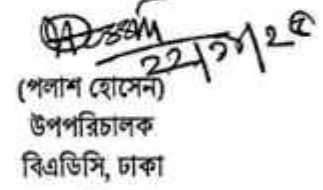 (পলাশ হোসেন)
উপপরিচালক
বিএডিসি, ঢাকা